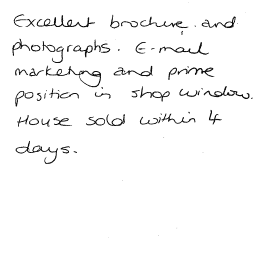 Excellent brochure and
photographs. E-mail
marketing and prime
position in shop window.
House sold within 4
days.